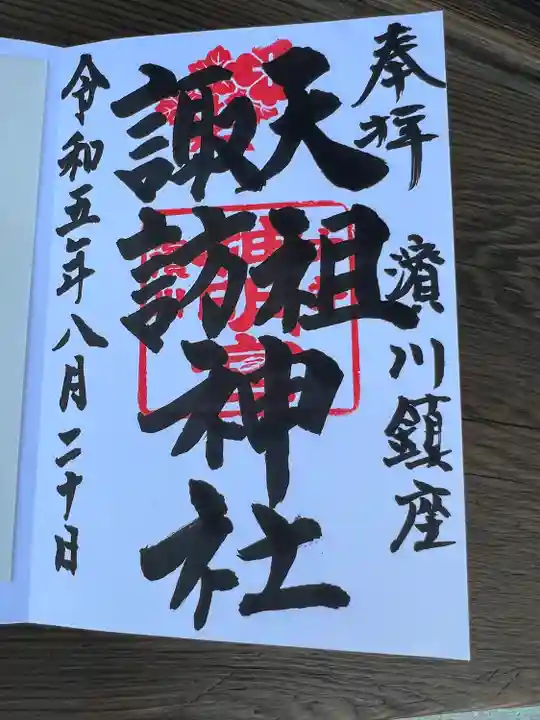 奉拝 濱川鎮座
天祖
諏訪神社
令和五年八月二十日